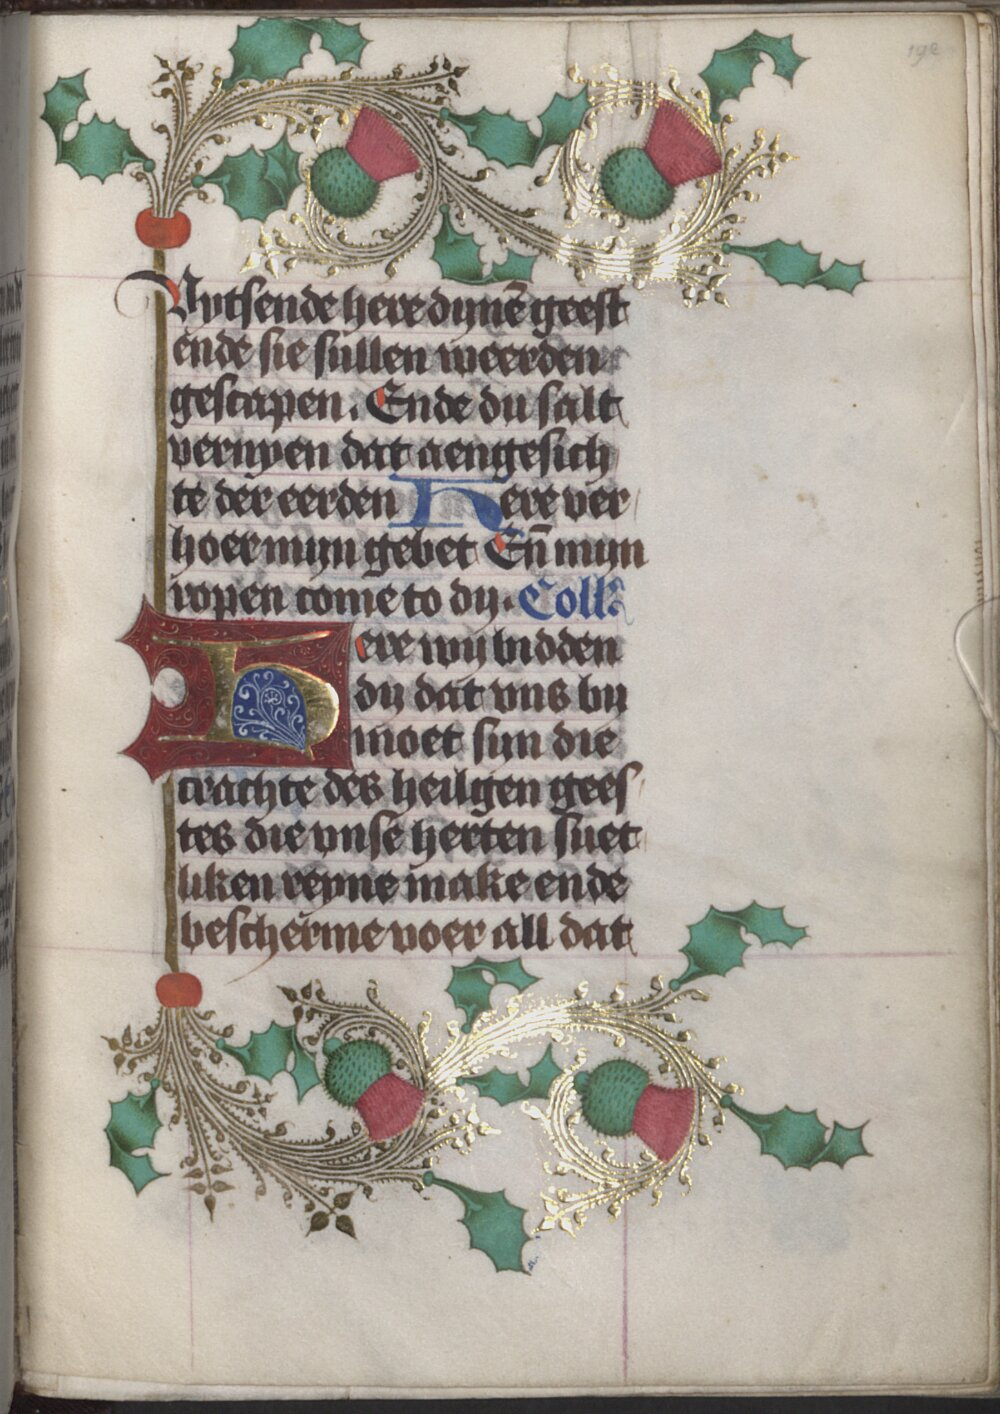 192
Vytsende here dynē geest
ende sie sullen weerden
gescapen. Ende du salt
vernyen dat aengesich
te der eerden Here ver
hoer myn gebet Eñ myn
ropen come to dy. Coll
Here wy bidden
dy dat uns by
moet syn die
crachte des heilgen gees
tes die unse herten suet
liken reyne make ende
bescherme voer all dat